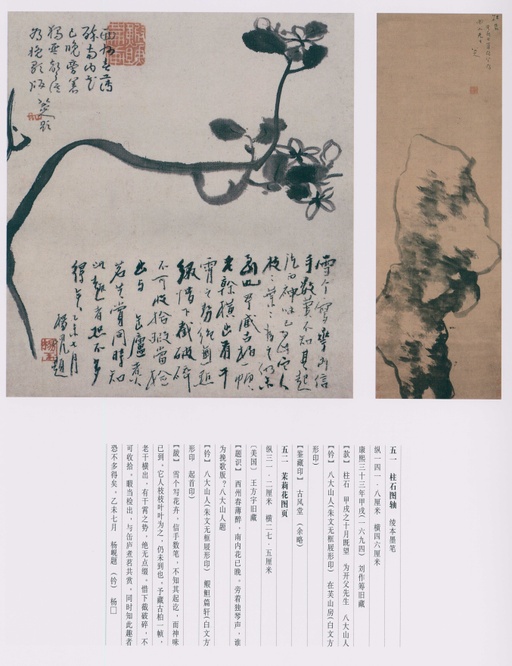 西州春薄
醉南内花
已晚旁著
獨琴聲誰
為挽歌版
八大山人題
雪个寫花卉信
手數筆不知其起
訖而神味已到它人
枝枝葉葉為之仍未
到也予藏古柏一幀
老榦橫出有干
霄之勢絕無點
綴惜下截破碎
不可收拾暇當檢
出與缶廬煮
茗共賞同時知
此趣者恐不多
得矣乙未七月
楊峴題
五一 柱石图轴 绫本墨笔
纵一四一·八厘米 横四六厘米
康熙三十三年甲戌(一六九四) 刘作筹旧藏
【款】 柱石 甲戌之十月既望 为开父先生 八大山人
【钤】 八大山人(朱文无框屐形印) 在芙山房(白文方
形印)
【鉴藏印】 古风堂 (余略)
五二 茉莉花图页
纵三一·二厘米 横二七·五厘米
(美国) 王方宇旧藏
【题识】 西州春薄醉,南内花已晚,旁着独琴声,谁
为挽歌版?八大山人题
【钤】 八大山人(朱文无框屐形印) 鰕䱇篇轩(白文方
形印 起首印)
【跋】 雪个写花卉,信手数笔,不知其起讫,而神味
已到,它人枝枝叶叶为之,仍未到也。予藏古柏一帧,
老干横出,有干霄之势,绝无点缀,惜下截破碎,不
可收拾,暇当检出,与缶庐煮茗共赏。同时知此趣者
恐不多得矣,乙未七月 杨岘题 (钤) 杨□